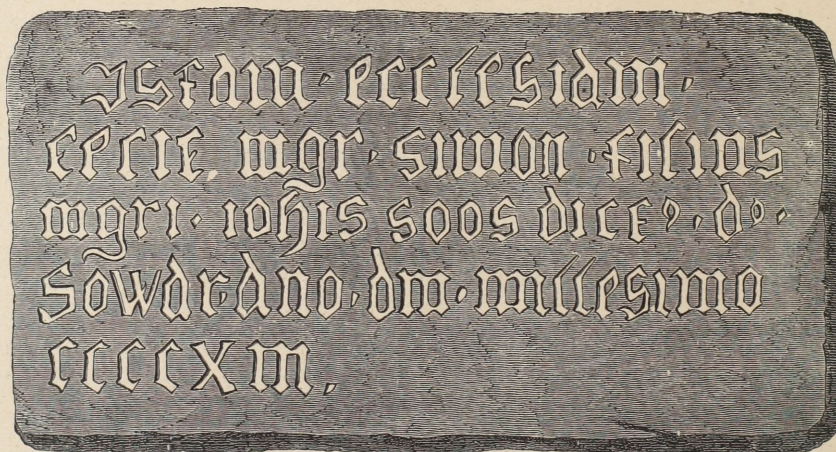 Istam · ecclesiam ·
fecit, mgr · simon · filius
mgri · iohis soos dictꝰ · d° ·
Sowar · ano · dm · millesimo
ccccxiii.